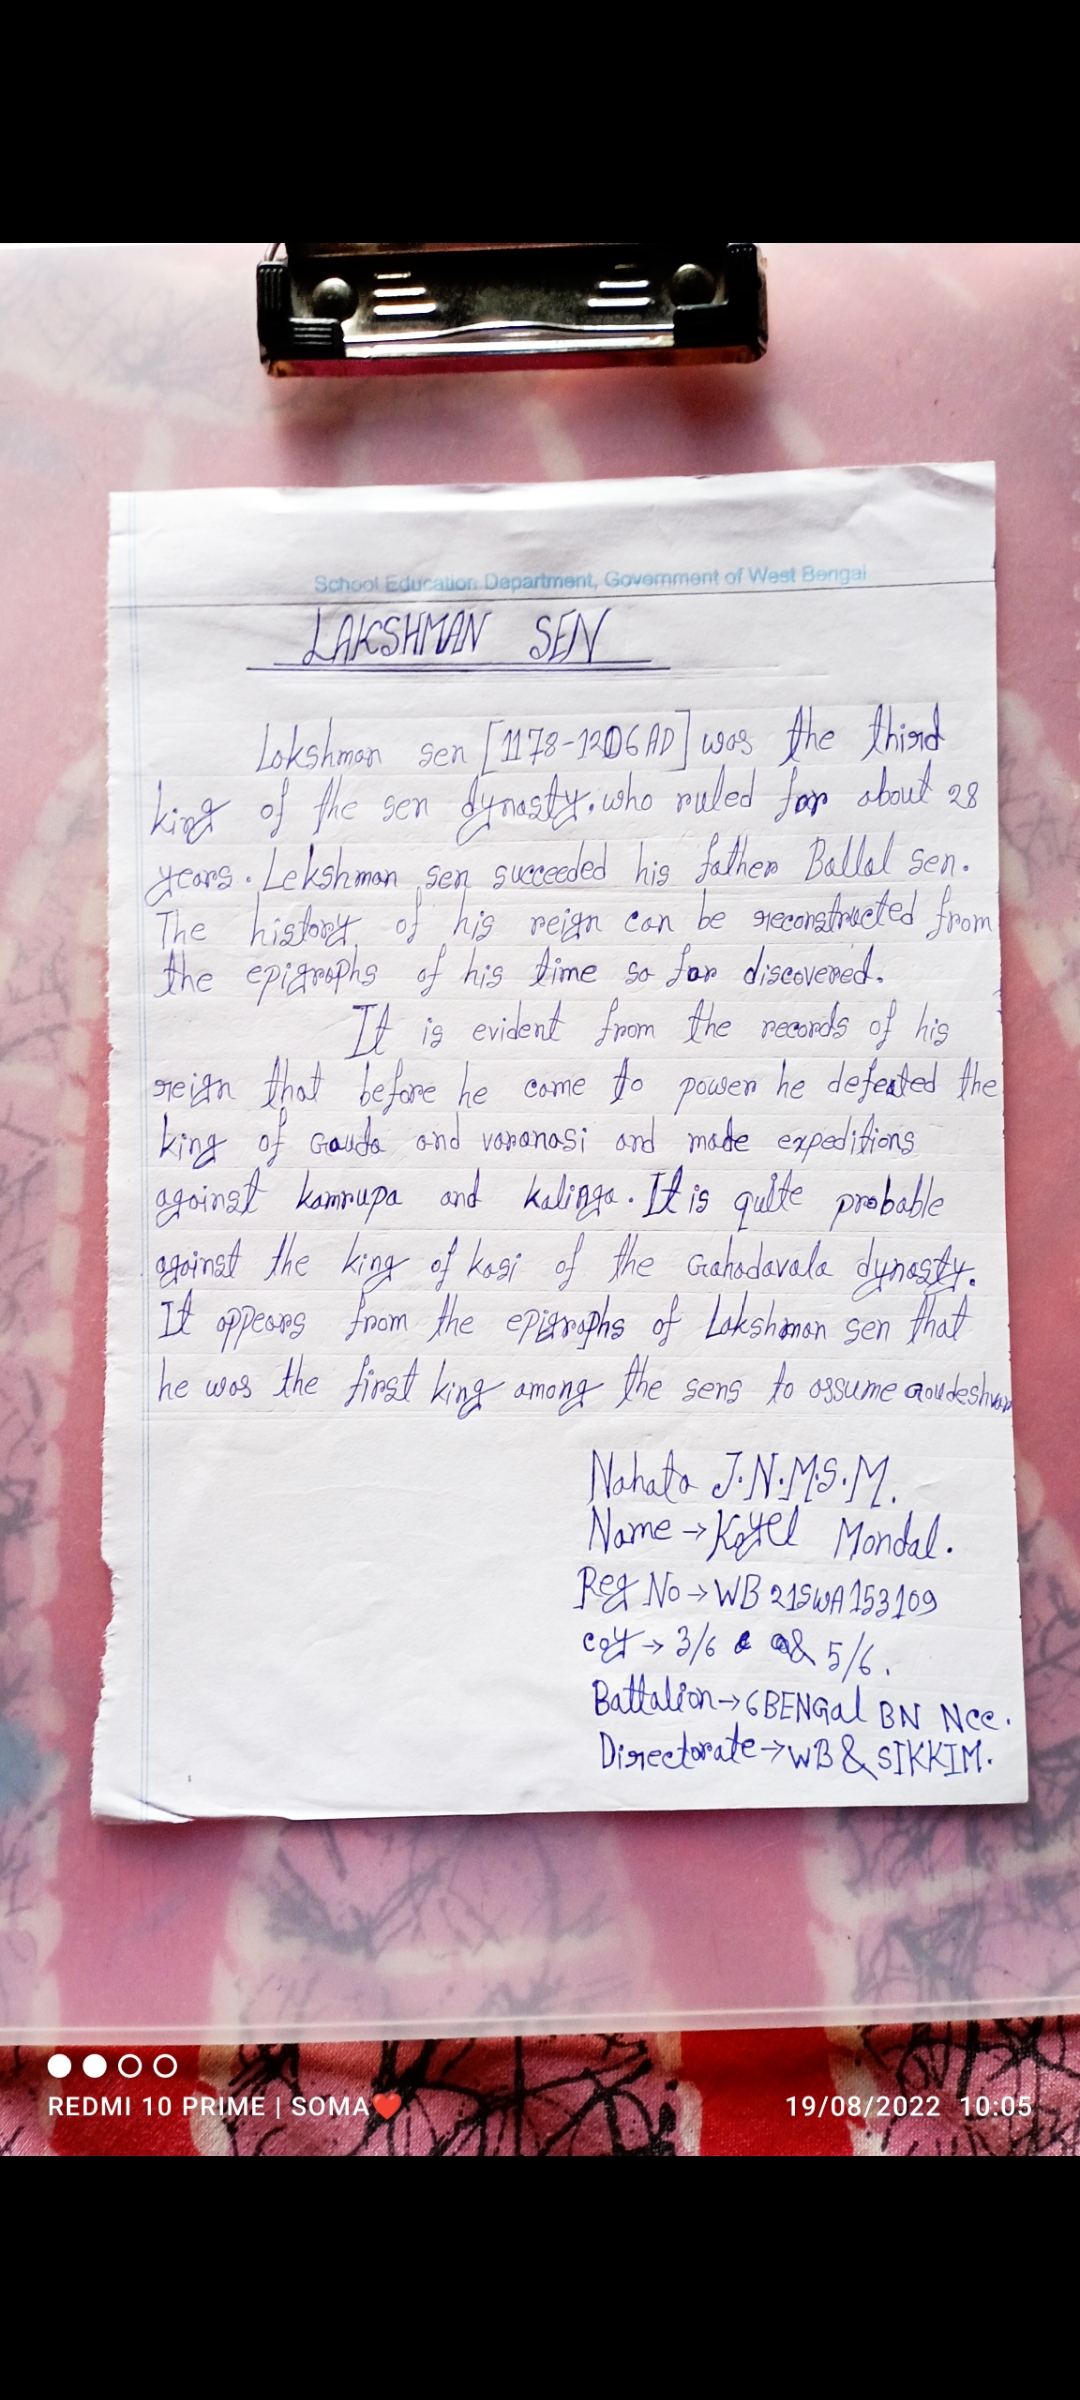 School Education Department, Government of West Bengal
LAKSHMAN SEN
Lakshman sen [1178-1206 AD] was the third
king of the sen dynasty. who ruled for about 28
years. Lekshman sen succeeded his father Ballal sen.
The history of his reign can be reconstructed from
the epigraphs of his time so far discovered.
It is evident from the records of his
reign that before he came to power he defeated the
king of Gauda and varanasi and made expeditions
against kamrupa and kalinga. It is quite probable
against the king of kasi of the Gahadavala dynasty.
It appears from the epigraphs of Lakshman sen that
he was the first king among the sens to assume Goudeshwar
Nahata J.N.M.S.M.
Name → Koyel Mondal.
Reg No → WB21SWA153109
coy → 3/6 & 5/6.
Battalion → 6 BENGal BN Ncc.
Directorate → WB & SIKKIM.
REDMI 10 PRIME | SOMA❤️
19/08/2022 10:05